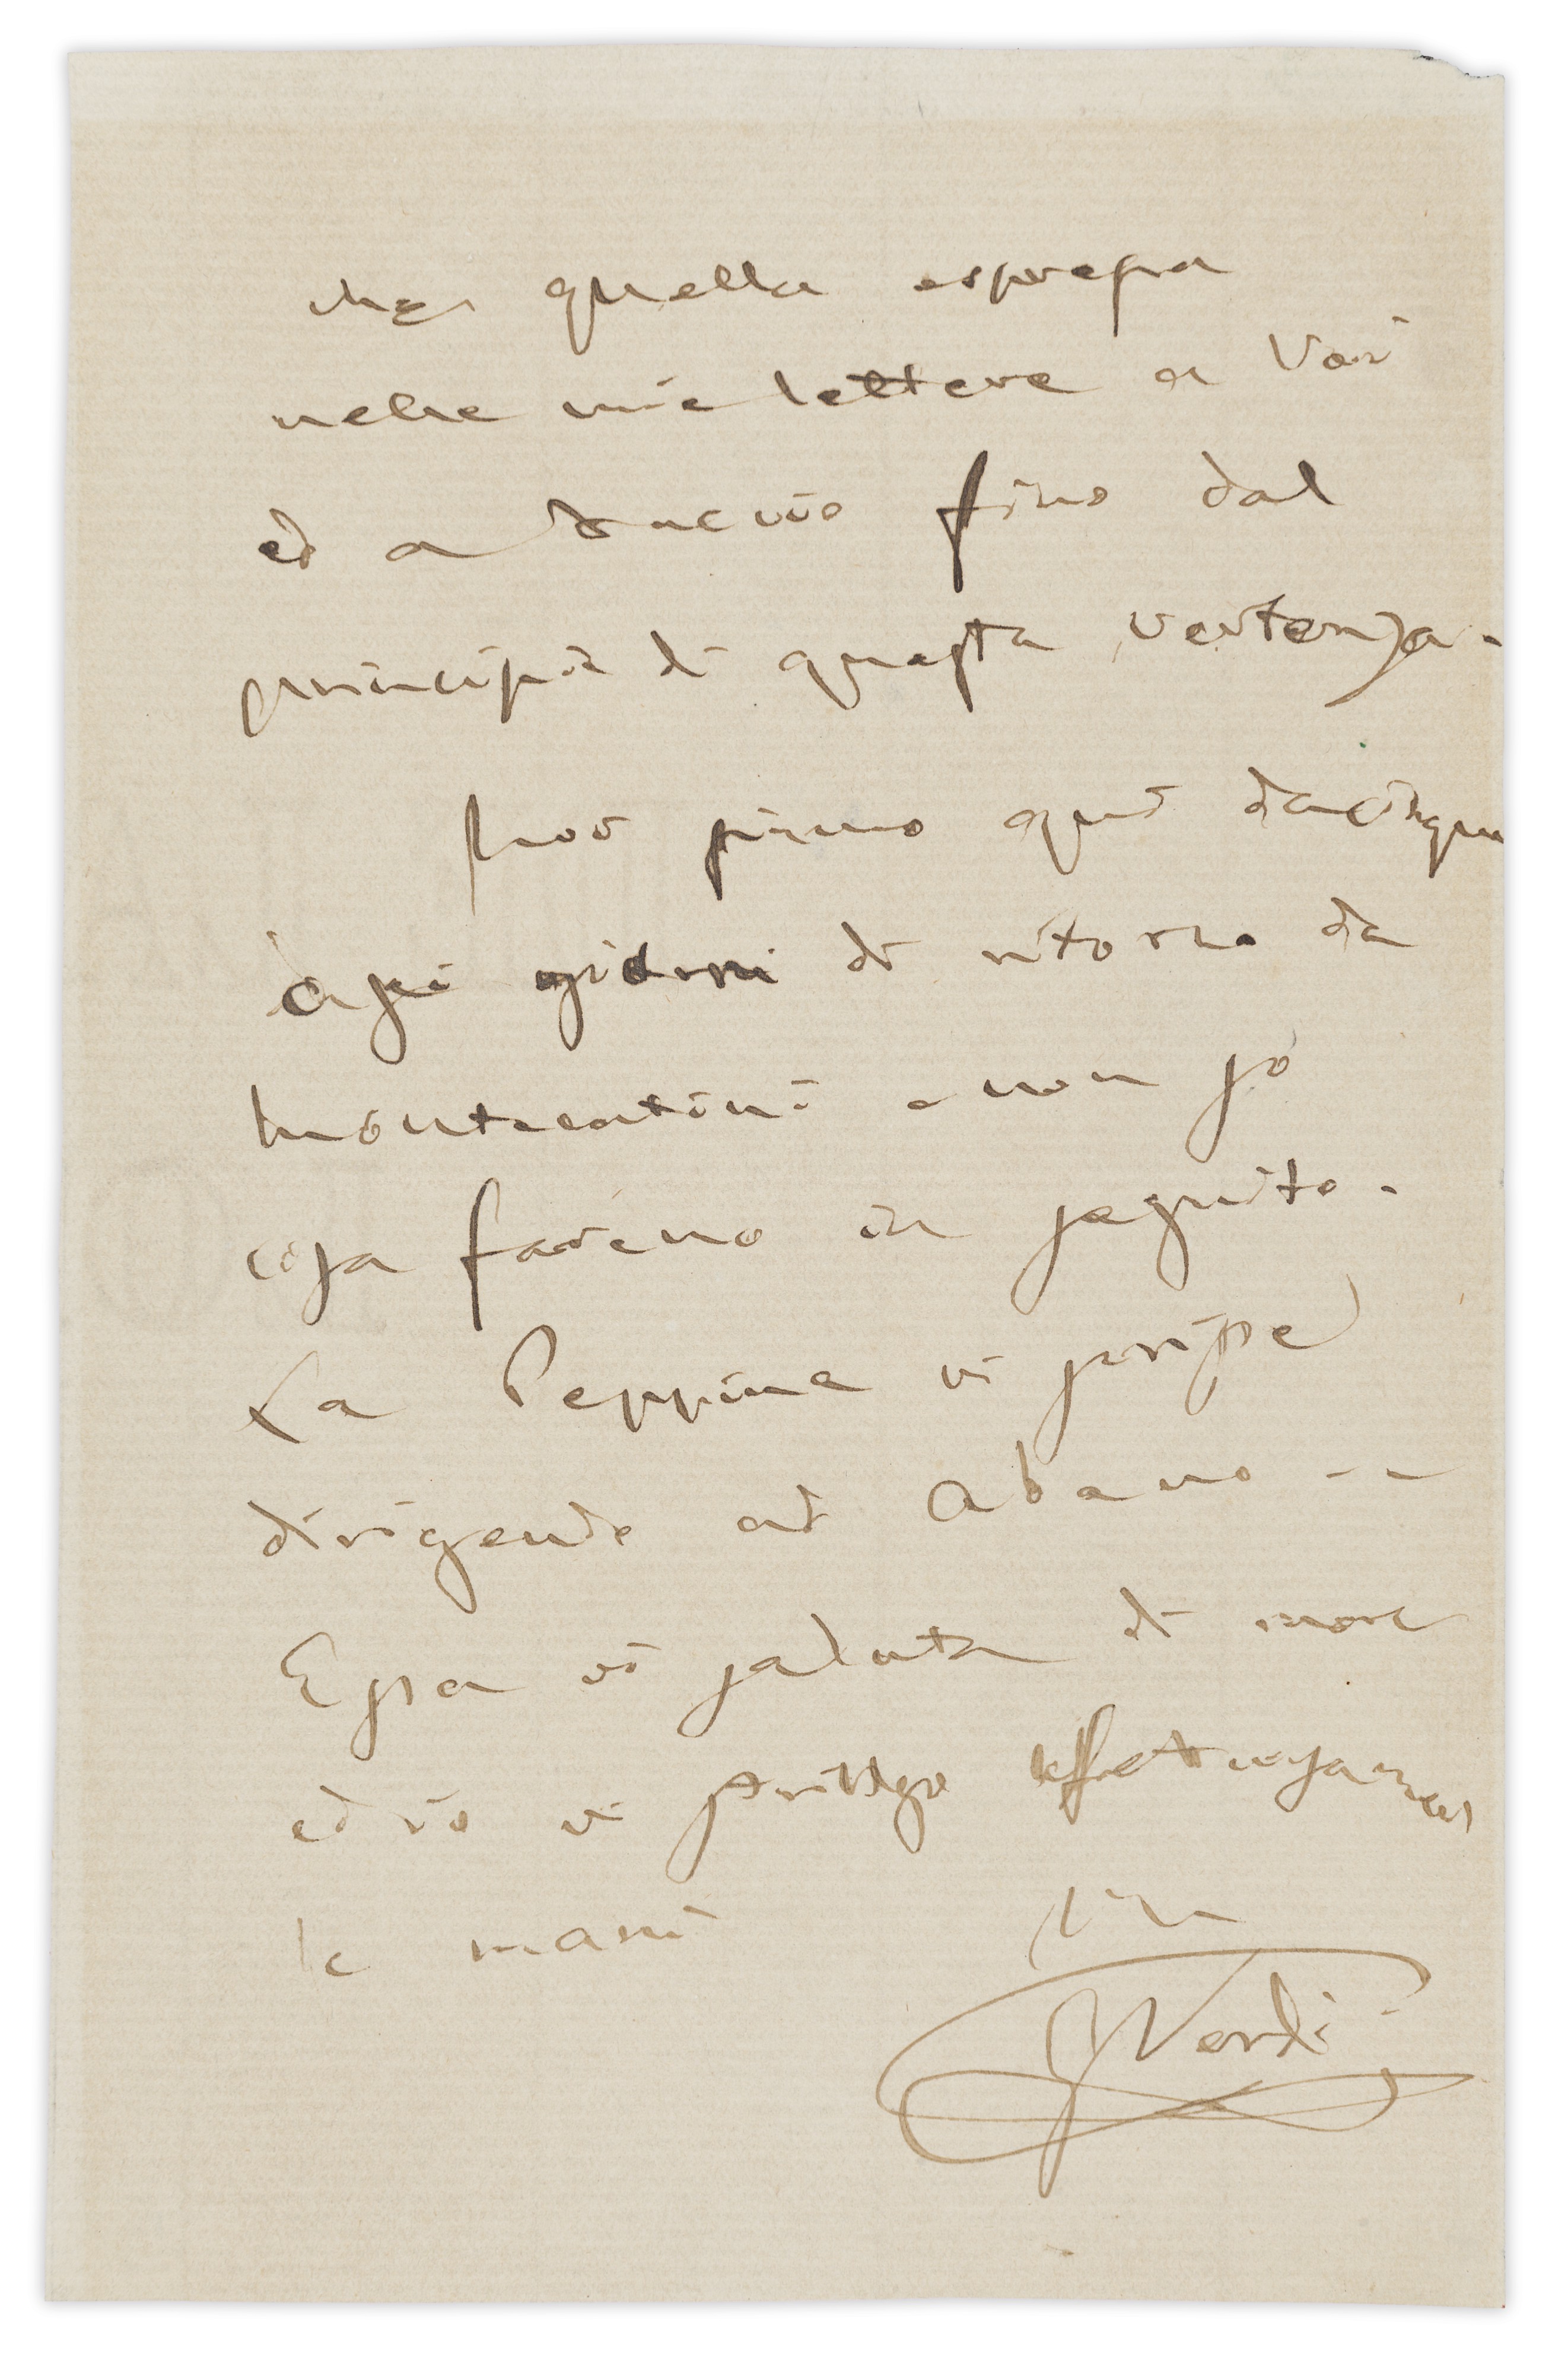 che quella espressa
nelle mie lettere a Voi
ed a Nuccio fino dal
principio di questa vertenza.
Noi siamo qui da cinque
o sei giorni di ritorno da
Montecatini e non so
cosa faremo in seguito.
La Peppina vi scrisse
dirigendo ad Abano --
Essa vi saluta di nuovo
ed io vi stringo affettuosamente
le mani
G Verdi